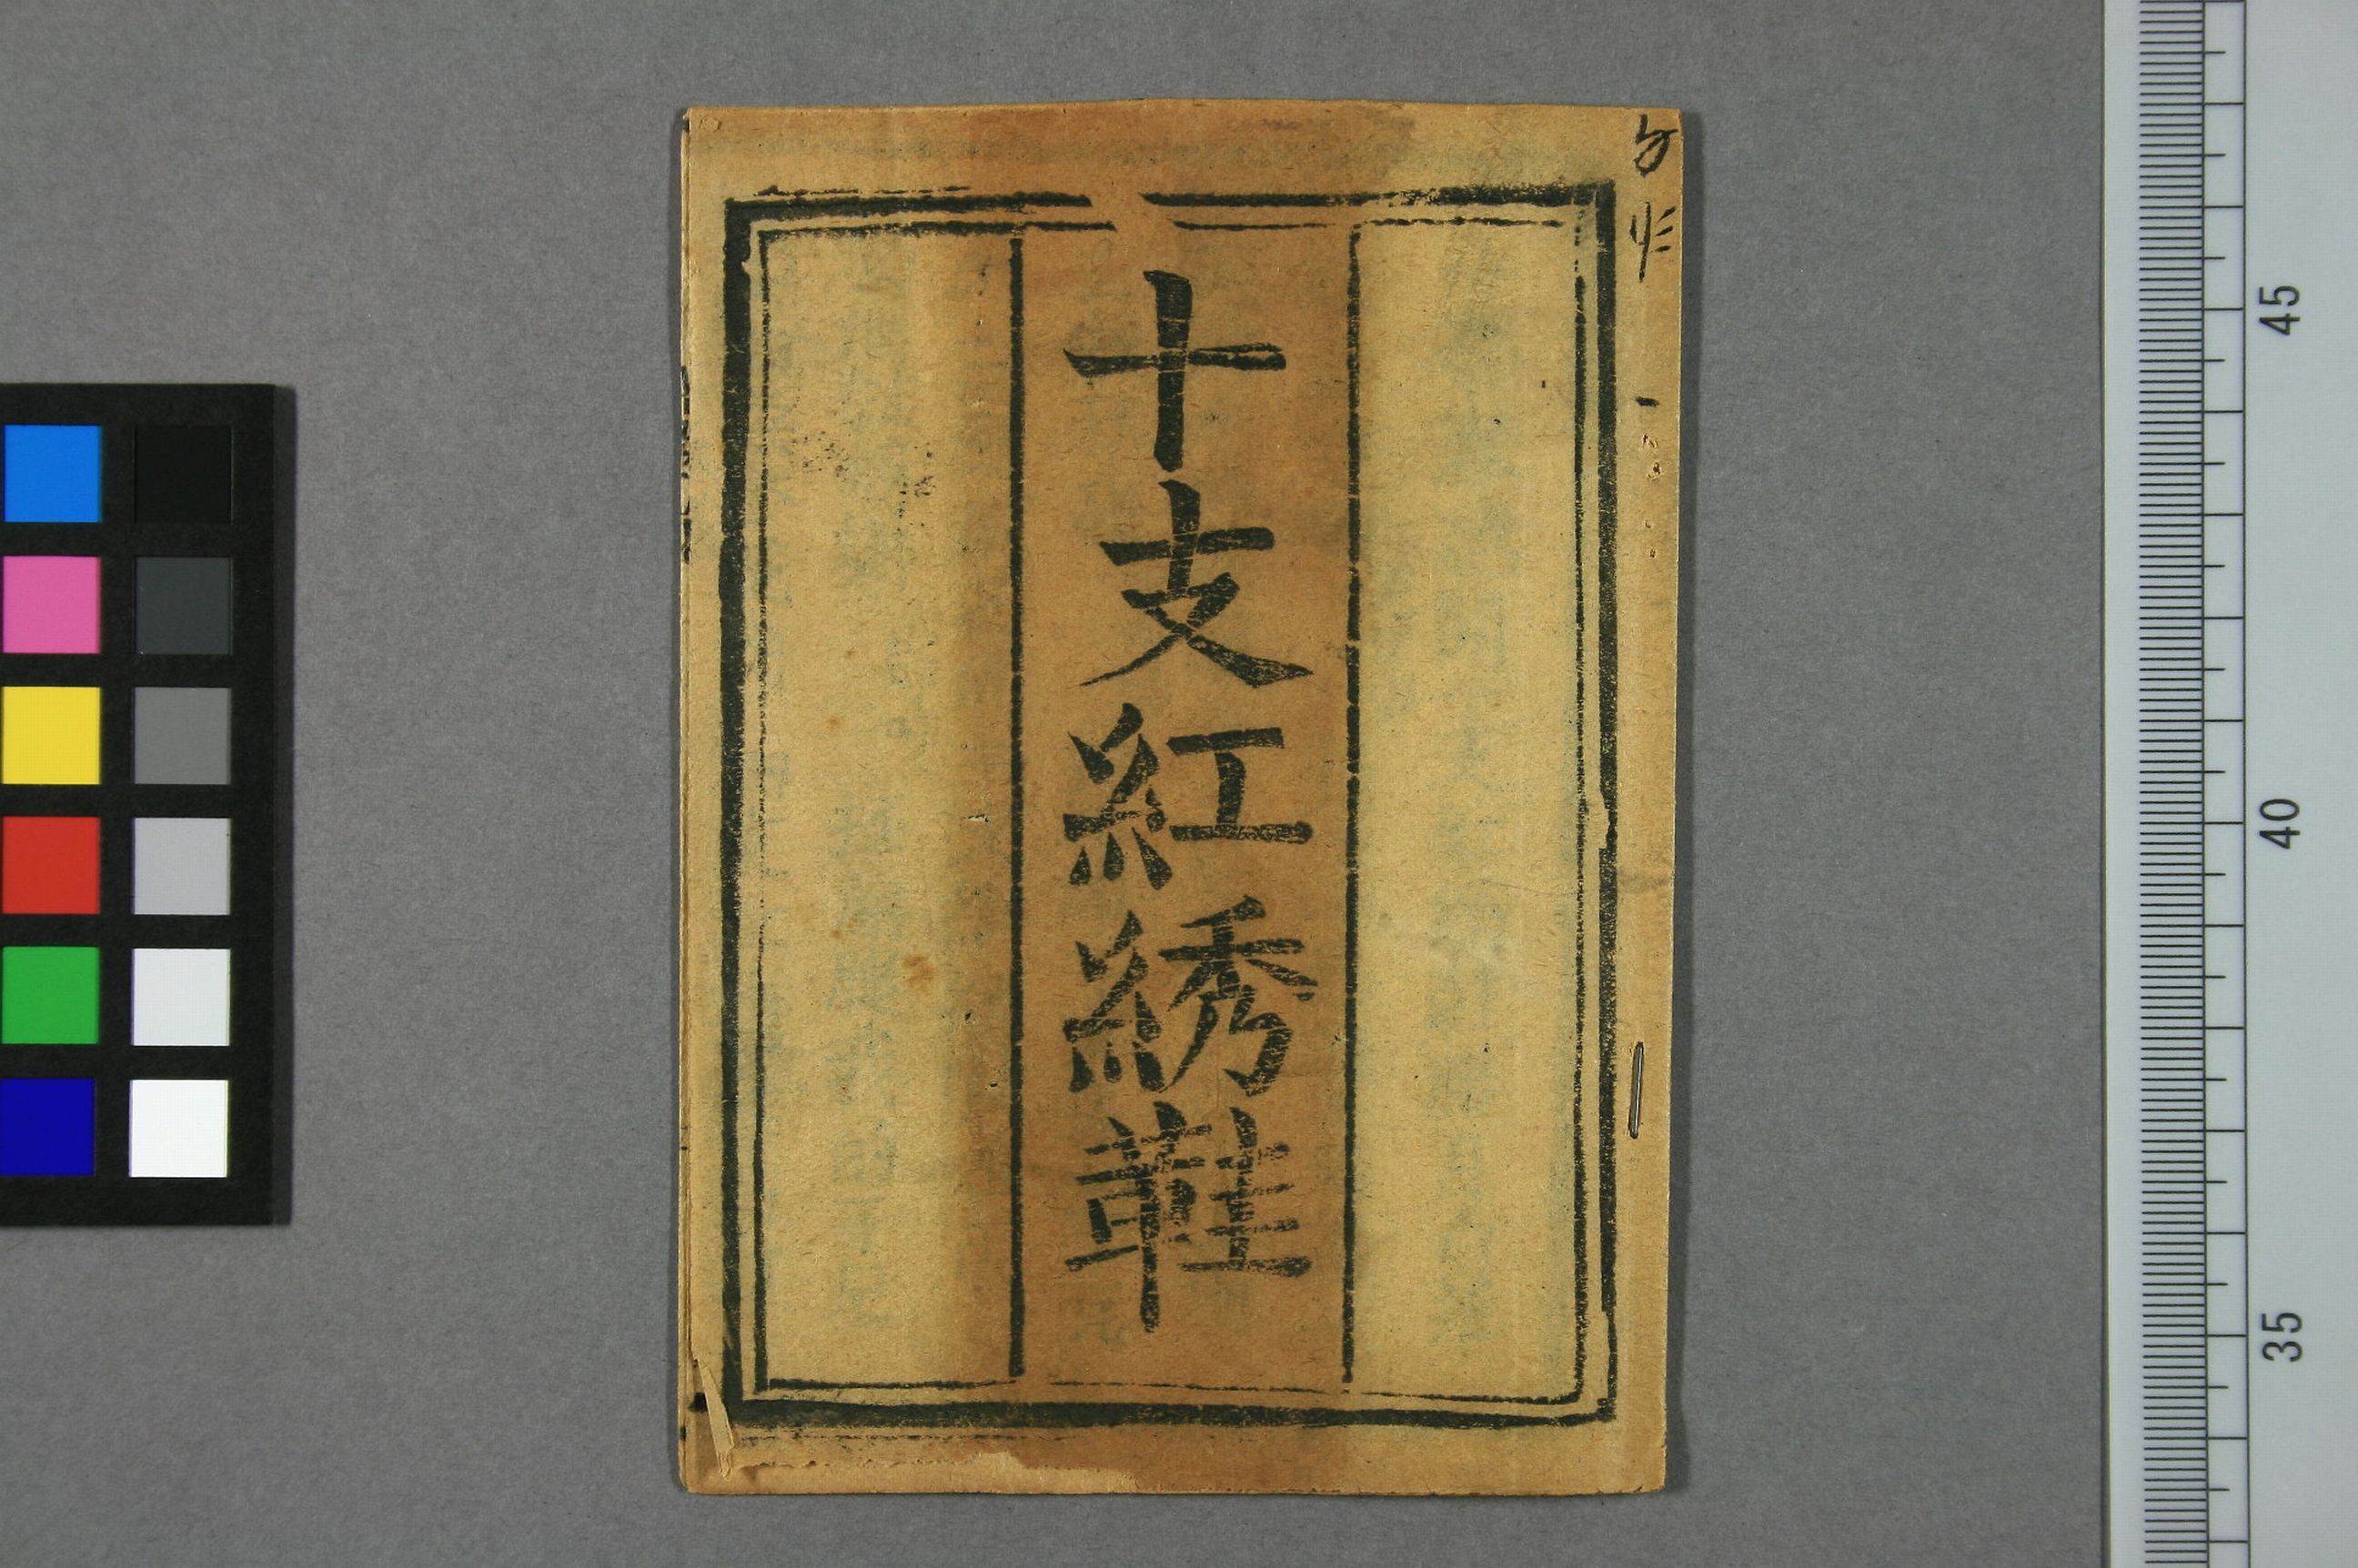 十支紅綉鞋
45
40
35